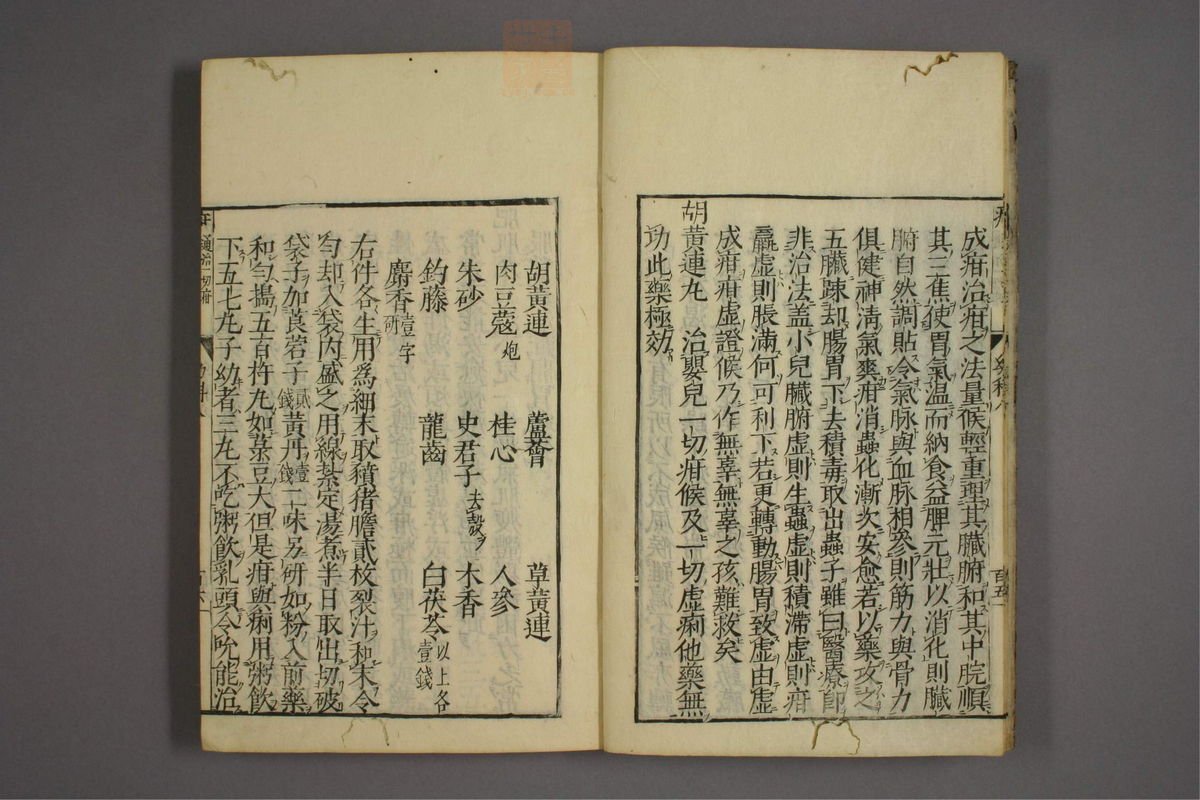 成疳治疳之法量候輕重理其臟腑和其中脘順
其三焦使胃氣温而納食益脾元壯以消化則臟
腑自然調貼令氣脉與血脉相參則筋力與骨力
俱健神淸氣爽疳消蟲化漸次安愈若以藥攻之
五臟踈却腸胃下去積毒取出蟲子雖曰醫療即
非治法盖小兒臟腑虚則生蟲虚則積滯虚則疳
羸虚則脹滿何可利下若更轉動腸胃致虚由虚
成疳疳虚證候乃作無辜無辜之孩難救矣
胡黃連丸 治嬰兒一切疳候及一切虚痢他藥無
功此藥極効
胡黃連 蘆薈 草黃連
肉豆蔻炮 桂心 人參
朱砂 史君子去殻 木香
釣藤 龍齒 白茯苓以上各壹錢
麝香壹字研
右件各生用爲細末取豶猪膽貳枚裂汁和末令
匀却入袋內盛之用線紮定湯煮半日取出切破
袋子加莨菪子貳錢黃丹壹錢二味另研如粉入前藥
和匀搗五百杵丸如菉豆大但是疳與痢用粥飮
下五七丸子幼者三丸不吃粥飮乳頭令吮能治